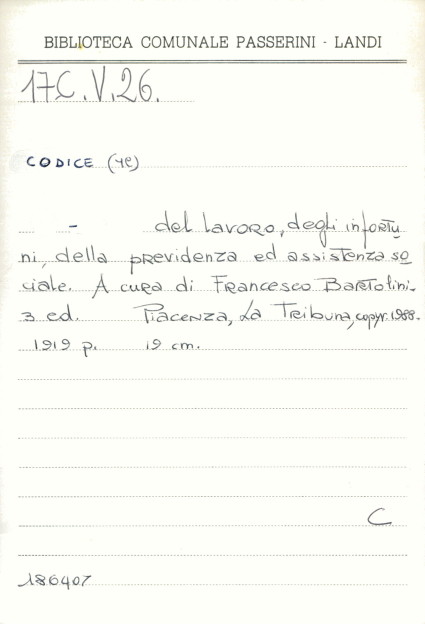 BIBLIOTECA COMUNALE PASSERINI - LANDI
17C.V.26.
CODICE (4e)
- del lavoro, degli infortu
ni, della previdenza ed assistenza so
ciale. A cura di Francesco Bartolini-
3 ed. Piacenza, La Tribuna, copyr. 1988.
1919 p. 19 cm.
C
186407